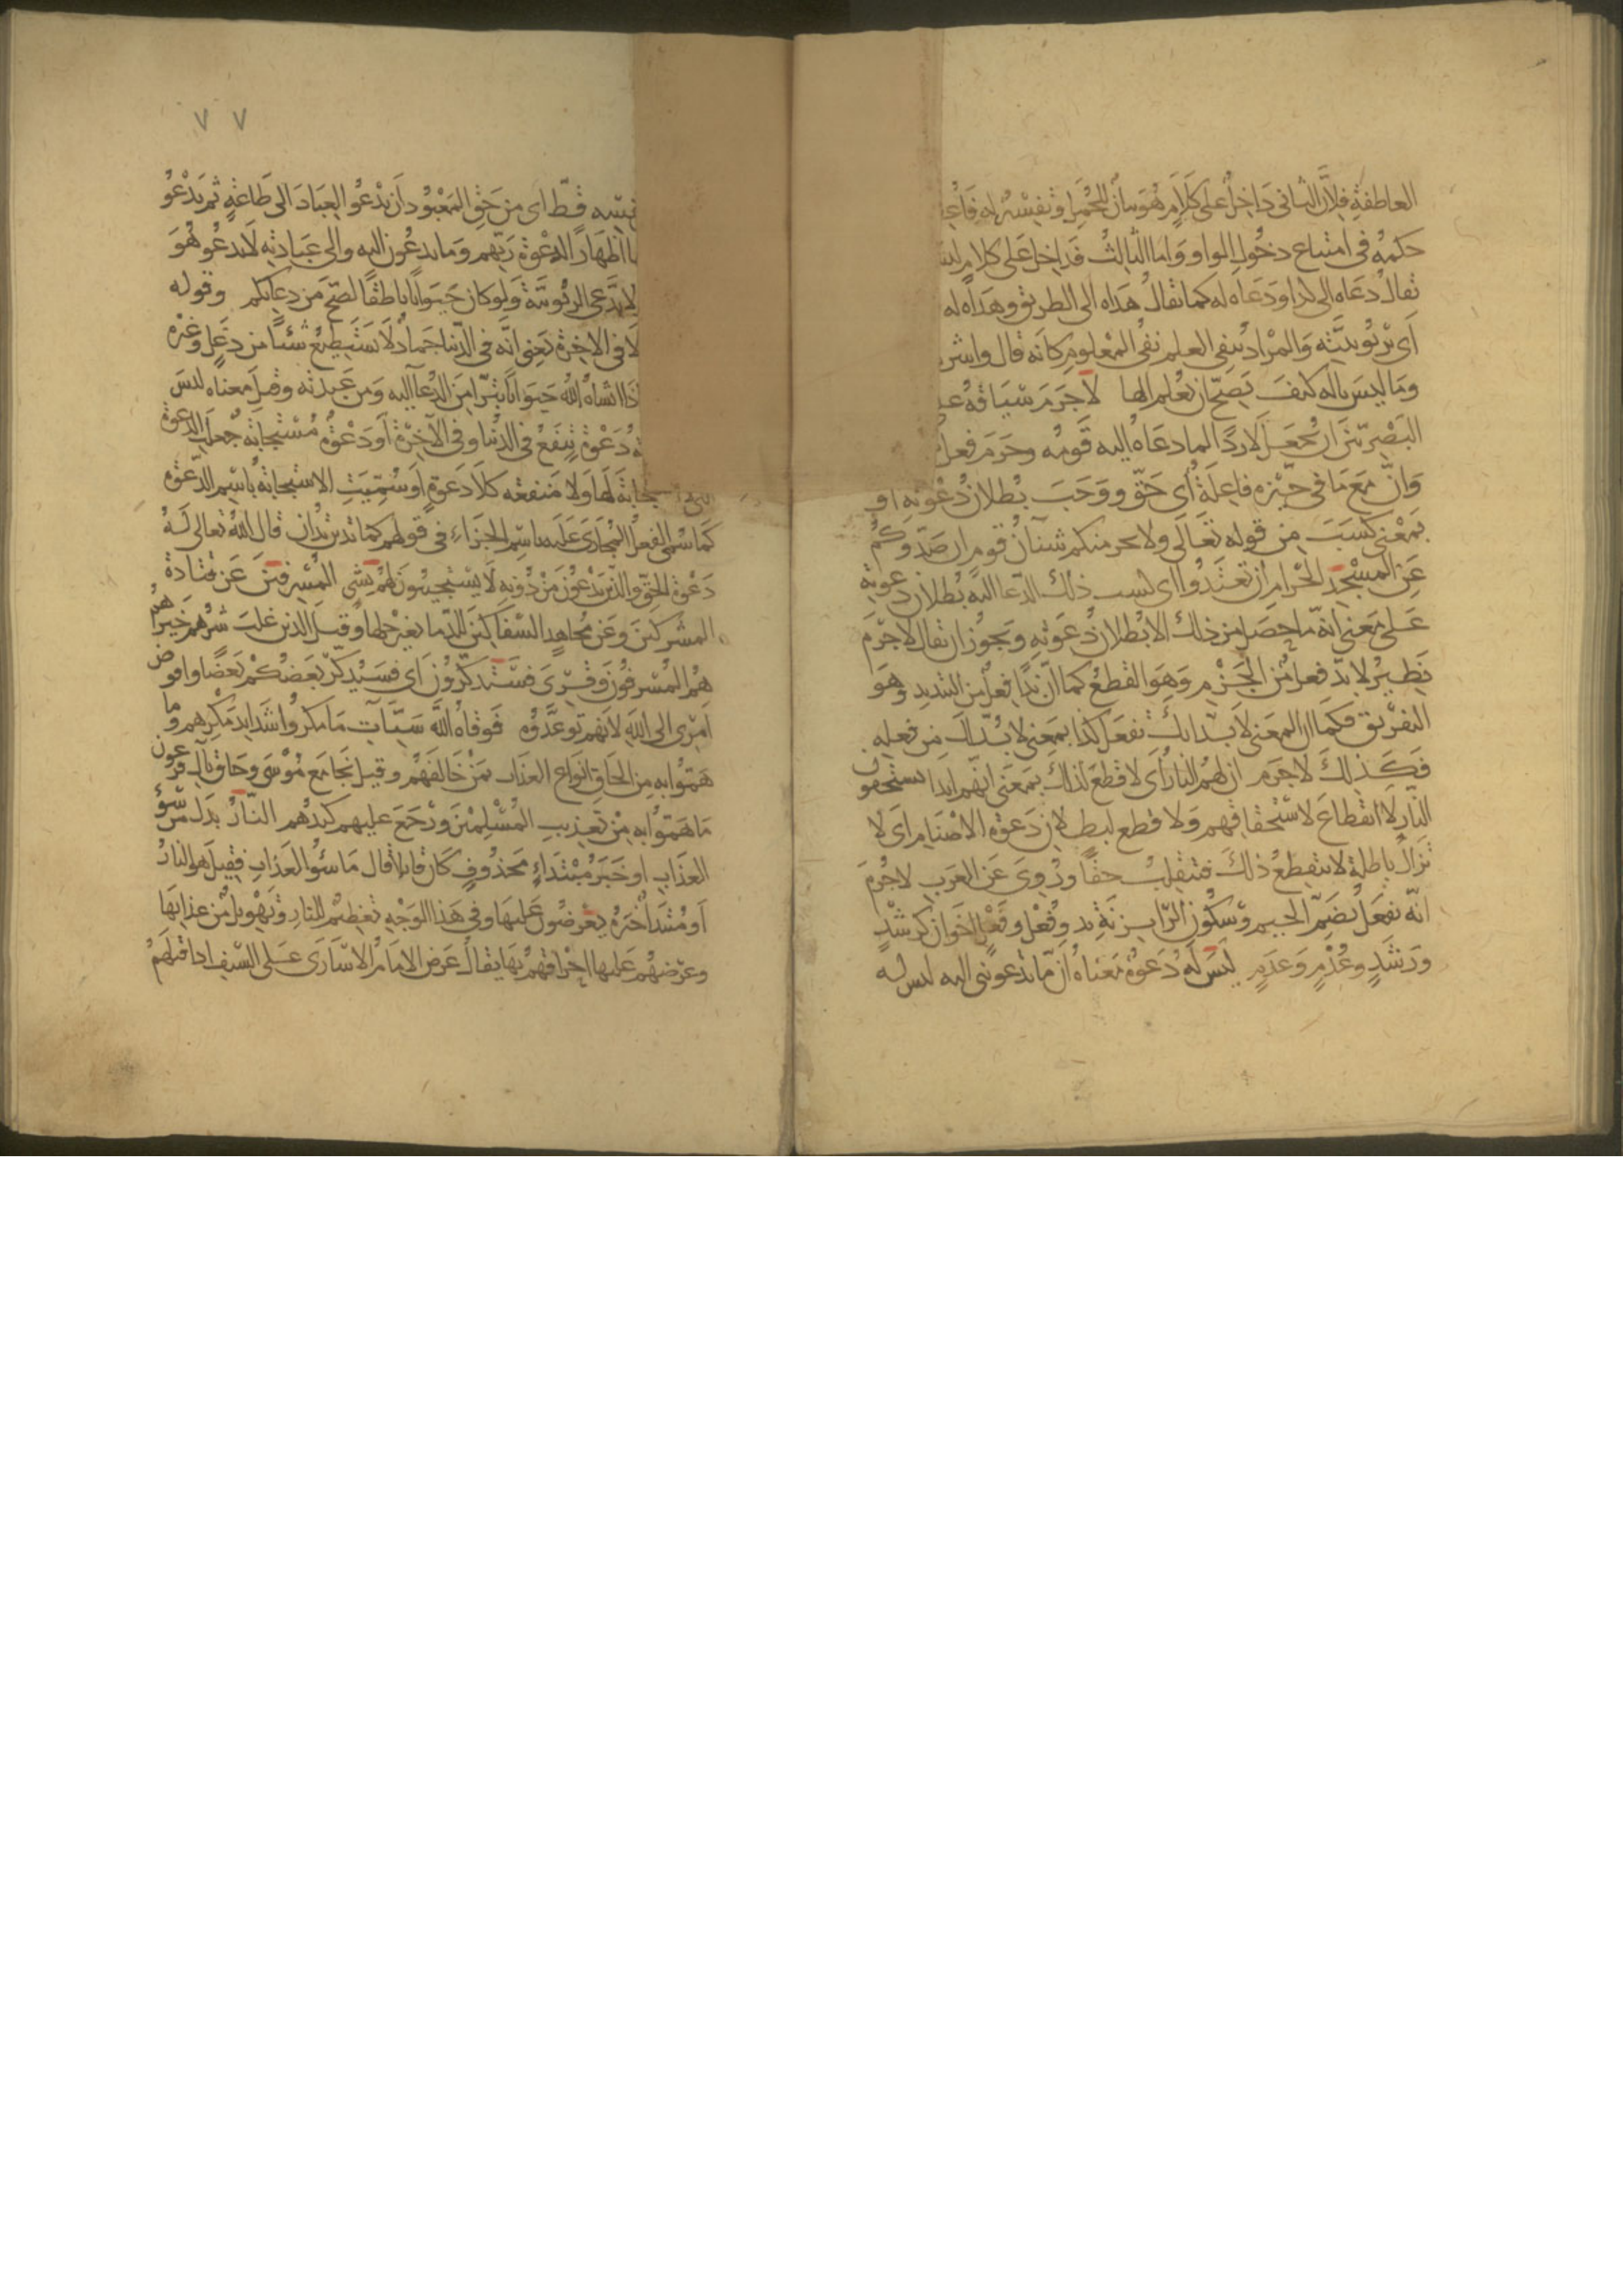 العاطفة فلأن الثاني داخل على كلام هو بيان للمجمل وتفسير له فاعطى
حكمه في امتناع دخول الواو واما الثالث فداخل على كلام ليس
يقال دعاه الى كذا ودعاه له كما يقال هداه الى الطريق وهداه له
اى بربوبيته والمراد بنفى العلم نفى المعلوم كانه قال واشرك
وما ليس باله كيف يصح ان يعلم الها لا جرم سياقه
البصريين ان يجعل لا ردا لما دعاه اليه قومه وجرم فعل
وان مع ما في حيزه فاعله اى حق ووجب بطلان دعوته او
بمعنى كسب من قوله تعالى ولا يجرمنكم شنآن قوم ان صدوكم
عن المسجد الحرام ان تعتدوا اى كسب ذلك الدعا اليه بطلان دعوته
على معنى انه ما حصل من ذلك الا بطلان دعوته ويجوز ان يقال لا جرم
نظير لا بد فعل من الجرم وهو القطع كما ان بدا فعل من التبديد وهو
التفريق فكما ان المعنى لا بد انك تفعل كذا بمعنى لا بد لك من فعله
فكذلك لا جرم ان لهم النار اى لا قطع لذلك بمعنى انهم ابدا يستحقون
النار لا انقطاع لاستحقاقهم ولا قطع لبطلان دعوة الاصنام اى لا
تزال باطلة لا ينقطع ذلك فينقلب حقا وروى عن العرب لا جرم
انه يفعل بضم الجيم وسكون الرا بزنة بد وفعل وفعل اخوان كرشد
ورشد وعدم وعدم ليس له دعوة معناه ان ما تدعوننى اليه ليس له
٧ ٧
قط اى من حق المعبود ان يدعو العباد الى طاعته ثم يدعو
اظهارا لدعوة ربهم وما يدعون اليه والى عبادته لا يدعو هو
لا يدعى الربوبية ولو كان حيوانا ناطقا لضج من دعائكم وقوله
لا في الاخرة يعنى انه في الدنيا جماد لا يستطيع شيئا من دعاء وغيره
اذا انشاه الله حيوانا تبرا من الدعا اليه ومن عبدته وقيل معناه ليس
دعوة تنفع في الدنيا وفي الآخرة او دعوة مستجابة جعلت الدعوة
التى لا استجابة لها ولا منفعة كلا دعوة او سميت الاستجابة باسم الدعوة
كما سمى الفعل المجازى عليه باسم الجزاء في قولهم كما تدين تدان قال الله تعالى له
دعوة الحق والذين يدعون من دونه لا يستجيبون لهم بشي المسرفين عن قتادة
المشركين وعن مجاهد السفاكين للدما بغير حلها وقيل الذين غلب شرهم خيرهم
هم المسرفون وقرى فستذكرون اى فسيذكر بعضكم بعضا وافوض
امرى الى الله لانهم توعدوه فوقاه الله سيآت ما مكروا شدايد مكرهم وما
هموا به من الحاق انواع العذاب بمن خالفهم وقيل نجا مع موسى وحاق بآل فرعون
ما هموا به من تعذيب المسلمين ورجع عليهم كيدهم النار بدل من سوء
العذاب او خبر مبتداء محذوف كان قايلا قال ما سوء العذاب فقيل هو النار
او مبتدا خبره يعرضون عليها وفي هذا الوجه تعظيم للنار وتهويل من عذابها
وعرضهم عليها احراقهم بها يقال عرض الامام الاسارى على السيف اذا قتلهم